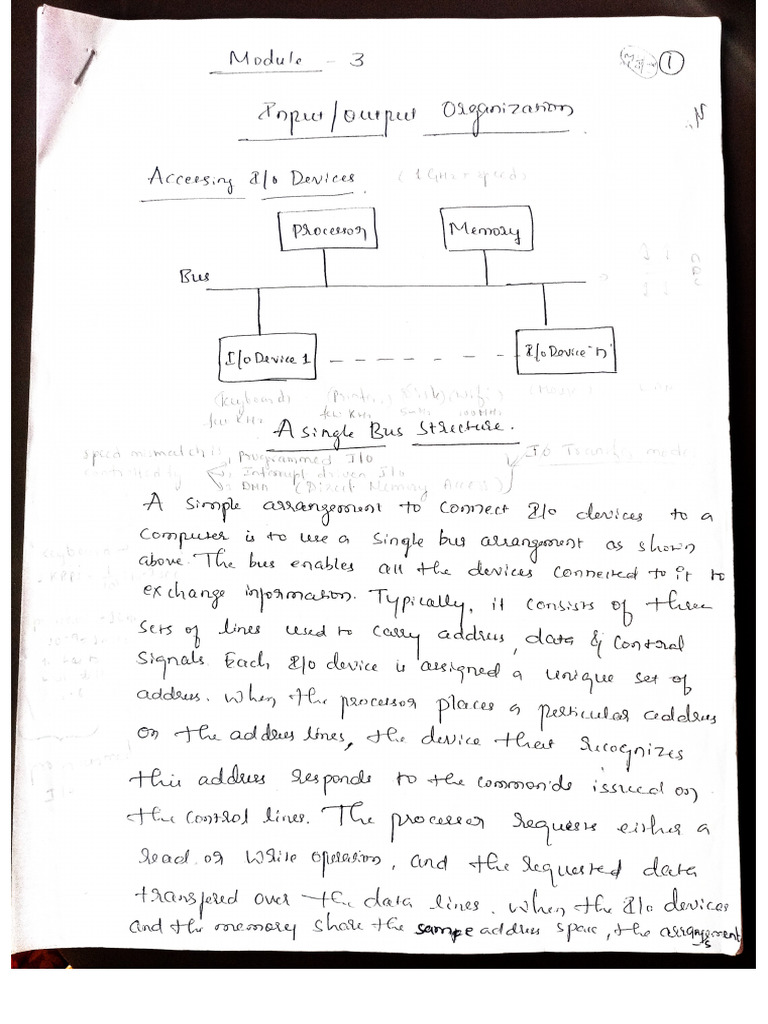 Module - 3
1
Input/output Organization
Accessing I/o Devices. (1 GHz speed)
Processor Memory
Bus
I/o Device 1 I/o Device 'n'
(Keyboard)
few KHz few KHz
A single Bus Structure.
speed mismatch is Programmed I/O IO Transfer mode
controlled by Interrupt driven I/O
DMA (Direct Memory Access)
A simple arrangement to connect I/o devices to a
computer is to use a single bus arrangement as shown
above. The bus enables all the devices connected to it to
exchange information. Typically, it consists of three
sets of lines used to carry address, data & control
signals. Each I/o device is assigned a unique set of
address. When the processor places a perticular address
on the address lines, the device that recognizes
this address responds to the commands issued on
the control lines. The processor requests either a
read or write operation, and the requested data
transfered over the data lines. When the I/o devices
and the memory share the same address space, the